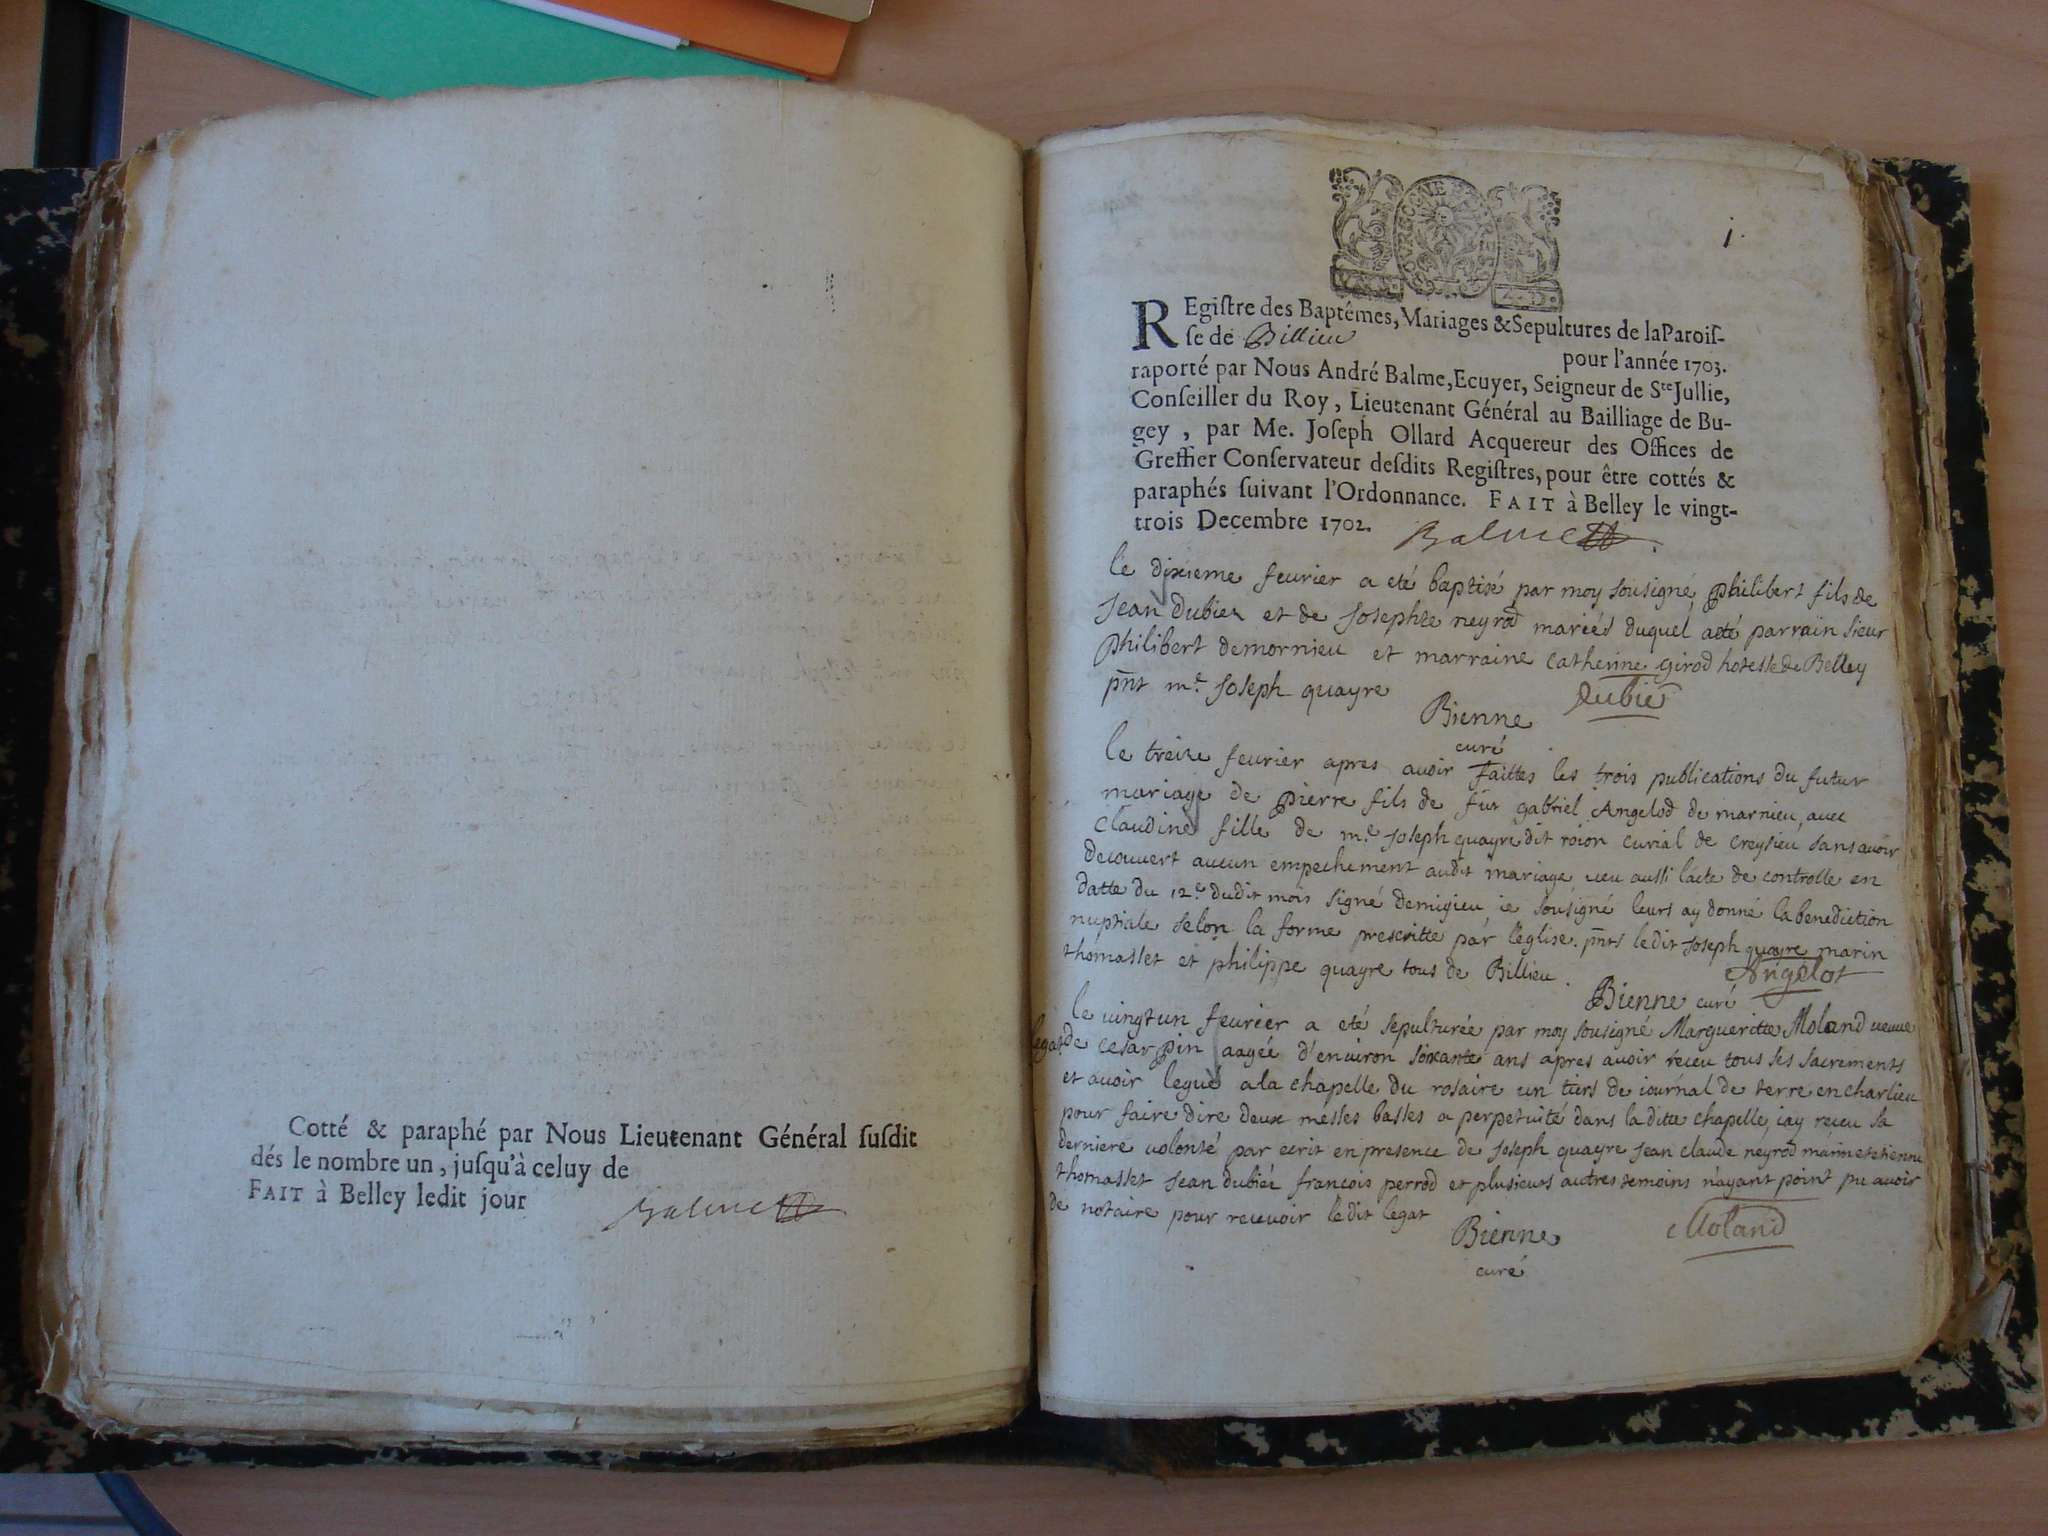 Cotté & paraphé par Nous Lieutenant Général ſuſdit
dés le nombre un, juſqu'à celuy de
FAIT à Belley ledit jour
Balme
1.
REgiſtre des Baptémes, Mariages & Sepultures de la Paroiſ-
ſe de Billieu
pour l'année 1703.
raporté par Nous André Balme, Ecuyer, Seigneur de Ste Jullie,
Conſeiller du Roy, Lieutenant Général au Bailliage de Bu-
gey, par Me. Joſeph Ollard Acquereur des Offices de
Greffier Conſervateur deſdits Regiſtres, pour être cottés &
paraphés ſuivant l'Ordonnance. FAIT à Belley le vingt-
trois Decembre 1702.
Balme
le dixieme feurier a eté baptisé par moy sousigné philibert fils de
Jean Dubier et de Josephte neyrod mariés duquel a eté parrain sieur
philibert demornieu et marraine catherine girod hotesse de Belley
pnt me Joseph quayre
Dubié
Bienne
curé
le treize feurier apres avoir faittes les trois publications du futur
mariage de pierre fils de fut gabriel Angelod de marnieu, avec
claudine fille de me Joseph quayre dit roion curial de creysieu sans avoir
decouvert aucun empechement audit mariage ueu aussi lacte de controlle en
datte du 12e dudit mois signé demigieu ie sousigné leurs ay donné la benediction
nuptiale selon la forme prescritte par l'eglise. pnts ledit Joseph quayre marin
thomasset et philippe quayre tous de Billieu.
Angelot
Bienne curé
le uingt un feurier a eté sepulturée par moy sousigné Margueritte Moland ueuue
legat de cesar pin aagée d'enuiron soixante ans apres auoir receu tous ses sacrements
et auoir legué a la chapelle du rosaire un tiers de iournal de terre en charlieu
pour faire dire deux messes basses a perpetuité dans la ditte chapelle, iay receu sa
derniere uolonté par ecrit en presence de Joseph quayre Jean claude neyrod marin et etienne
thomasset Jean dubier francois perrod et plusieurs autres temoins n'ayant point pu auoir
de notaire pour receuoir ledit legat
Bienne
curé
Moland